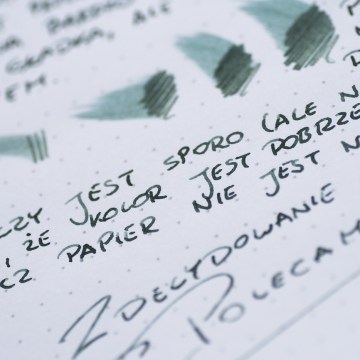 GŁADKA, ALE
EM.
CZY JEST SPORO (ALE N
I ŻE KOLOR JEST DOBRZE
CZ PAPIER NIE JEST N
ZDECYDOWANIE
POLECAM